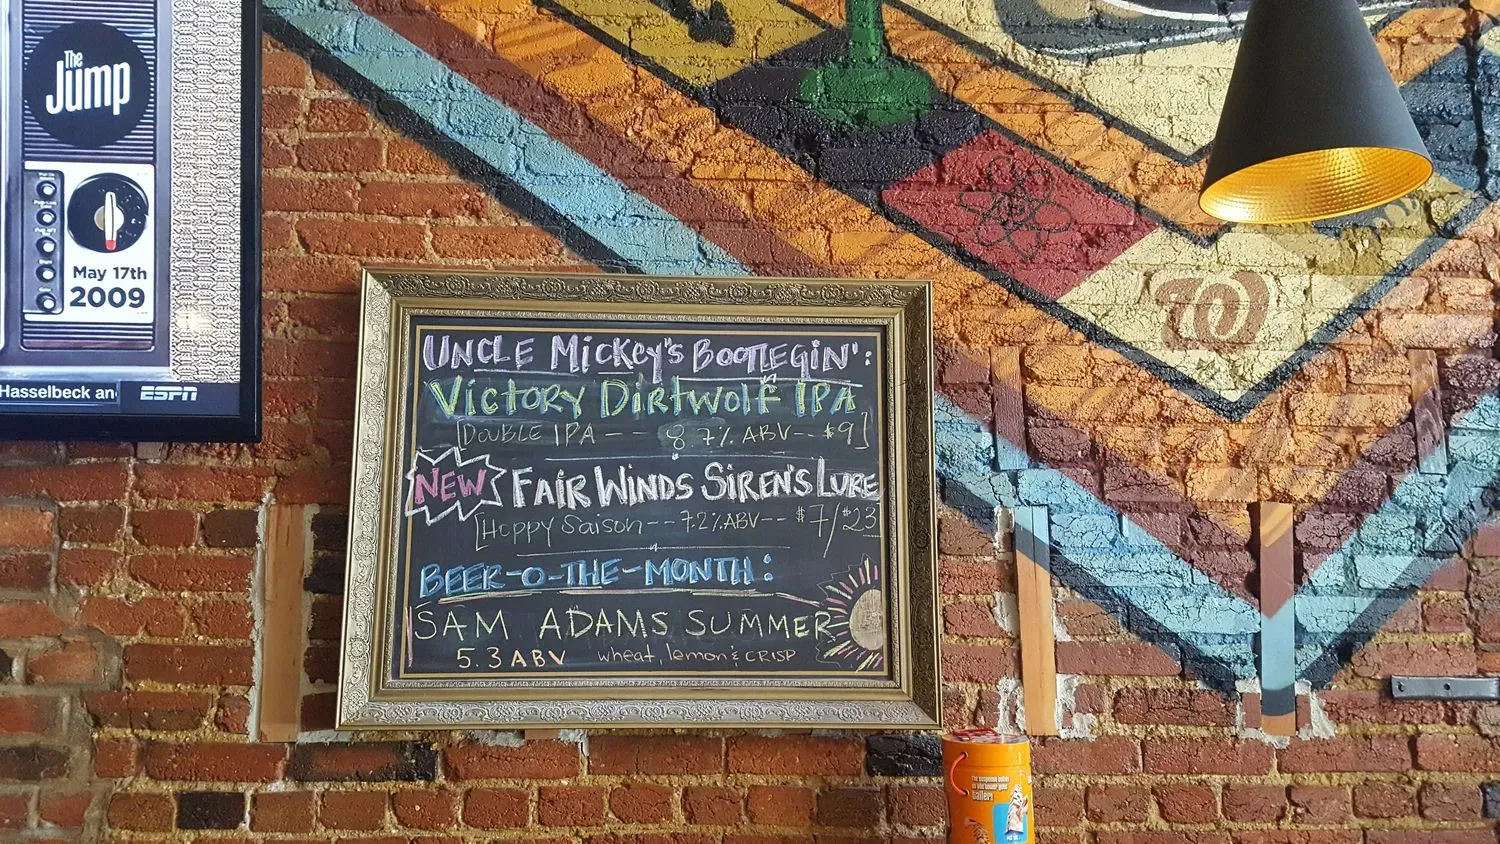 The
Jump
May 17th
2009
Hasselbeck an
ESPN
UNCLE MICKEY'S BOOTLEGIN':
VICTORY DIRTWOLF IPA
[DOUBLE IPA -- 8.7% ABV -- $9]
NEW FAIR WINDS SIREN'S LURE
[Hoppy Saison -- 7.2% ABV -- $7/$23
BEER-O-THE-MONTH:
SAM ADAMS SUMMER
5.3 ABV wheat, lemon & CRISP
W
taller!